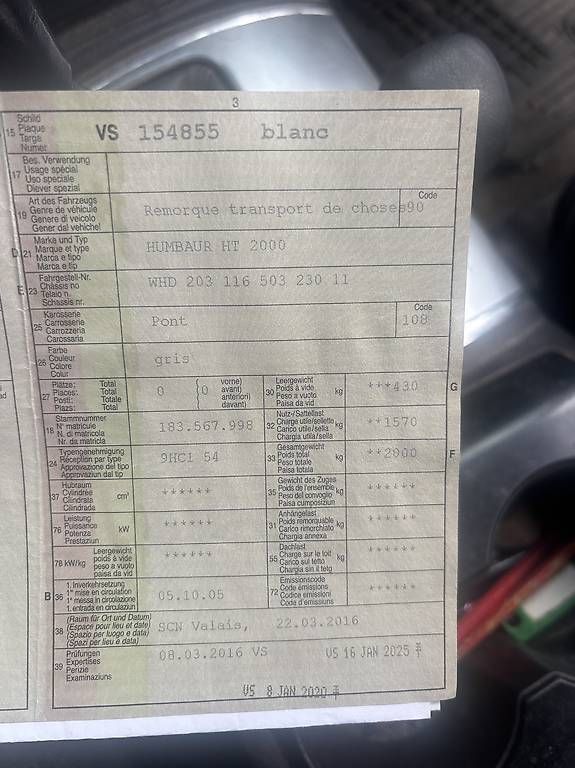 3
15 Schild
Plaque
Targa
Numer
VS 154855 blanc
17 Bes. Verwendung
Usage spécial
Uso speciale
Diever spezial
19 Art des Fahrzeugs
Genre de véhicule
Genere di veicolo
Gener dal vehichel
Remorque transport de choses
Code
90
D 21 Marke und Typ
Marque et type
Marca e tipo
Marca e tip
HUMBAUR HT 2000
E 23 Fahrgestell-Nr.
Châssis no
Telaio n.
Schassis nr.
WHD 203 116 503 230 11
25 Karosserie
Carrosserie
Carrozzeria
Carossaria
Pont
Code
108
26 Farbe
Couleur
Colore
Colur
gris
27 Plätze: Total
Places: Total
Posti: Totale
Plazs: Total
0 (0 vorne)
avant)
anteriori)
davant)
30 Leergewicht
Poids à vide
Peso a vuoto
Paisa da vid
kg
***430
G
18 Stammnummer
N° matricule
N. di matricola
Nr. da matricla
183.567.998
32 Nutz-/Sattellast
Charge utile/sellette
Carico utile/sella
Chargia utila/sella
kg
**1570
24 Typengenehmigung
Réception par type
Approvazione del tipo
Approvaziun dal tip
9HC1 54
33 Gesamtgewicht
Poids total
Peso totale
Paisa totala
kg
**2000
F
37 Hubraum
Cylindrée
Cilindrata
Cilindrada
cm³
******
35 Gewicht des Zuges
Poids de l'ensemble
Peso del convoglio
Paisa cumposiziun
kg
******
76 Leistung
Puissance
Potenza
Prestaziun
kW
******
31 Anhängelast
Poids remorquable
Carico rimorchiabile
Chargia annexa
kg
******
78 kW/kg Leergewicht
poids à vide
peso a vuoto
paisa da vid
******
55 Dachlast
Charge sur le toit
Carico sul tetto
Chargia sin il tetg
kg
******
B 36 1. Inverkehrsetzung
1re mise en circulation
1a messa in circolazione
1. entrada en circulaziun
05.10.05
72 Emissionscode
Code émissions
Codice emissioni
Code d'emissiuns
******
38 (Raum für Ort und Datum)
(Espace pour lieu et date)
(Spazio per luogo e data)
(Spazi per lieu e data)
SCN Valais, 22.03.2016
39 Prüfungen
Expertises
Perizie
Examinaziuns
08.03.2016 VS
VS 16 JAN 2025
VS 8 JAN 2020